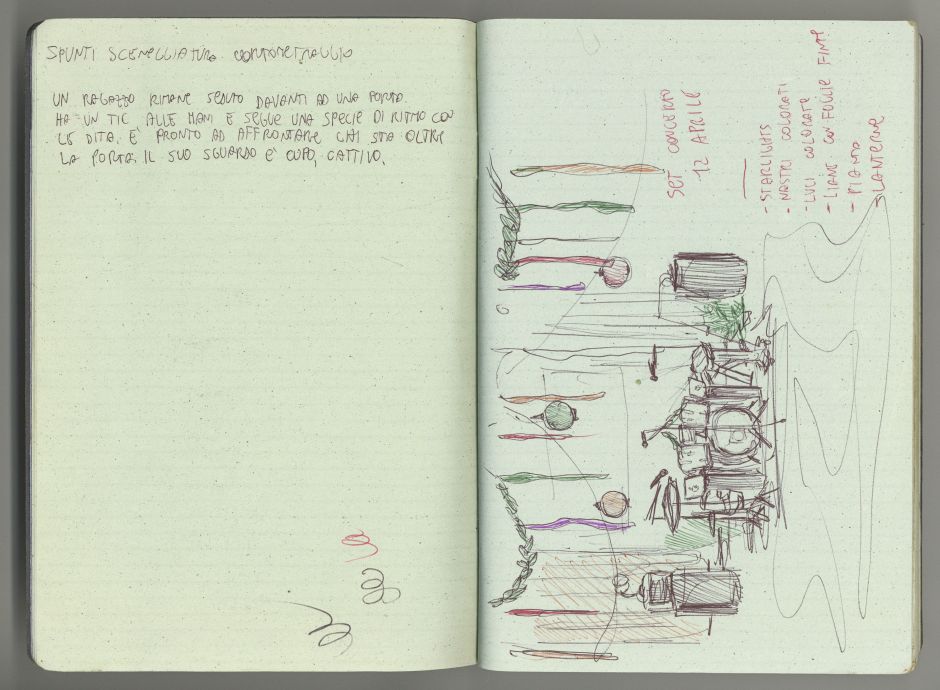 SPUNTI SCENEGGIATURA CORTOMETRAGGIO
UN RAGAZZO RIMANE SEDUTO DAVANTI AD UNA PORTA.
HA UN TIC ALLE MANI E SEGUE UNA SPECIE DI RITMO CON
LE DITA. È PRONTO AD AFFRONTARE CHI STA OLTRE
LA PORTA. IL SUO SGUARDO È CUPO, CATTIVO.
SET CONCERTO
12 APRILE
- STARLIGHTS
- NASTRI COLORATI
- LUCI COLORATE
- LIANE CON FOGLIE FINTE
- PIANTA
- LANTERNE